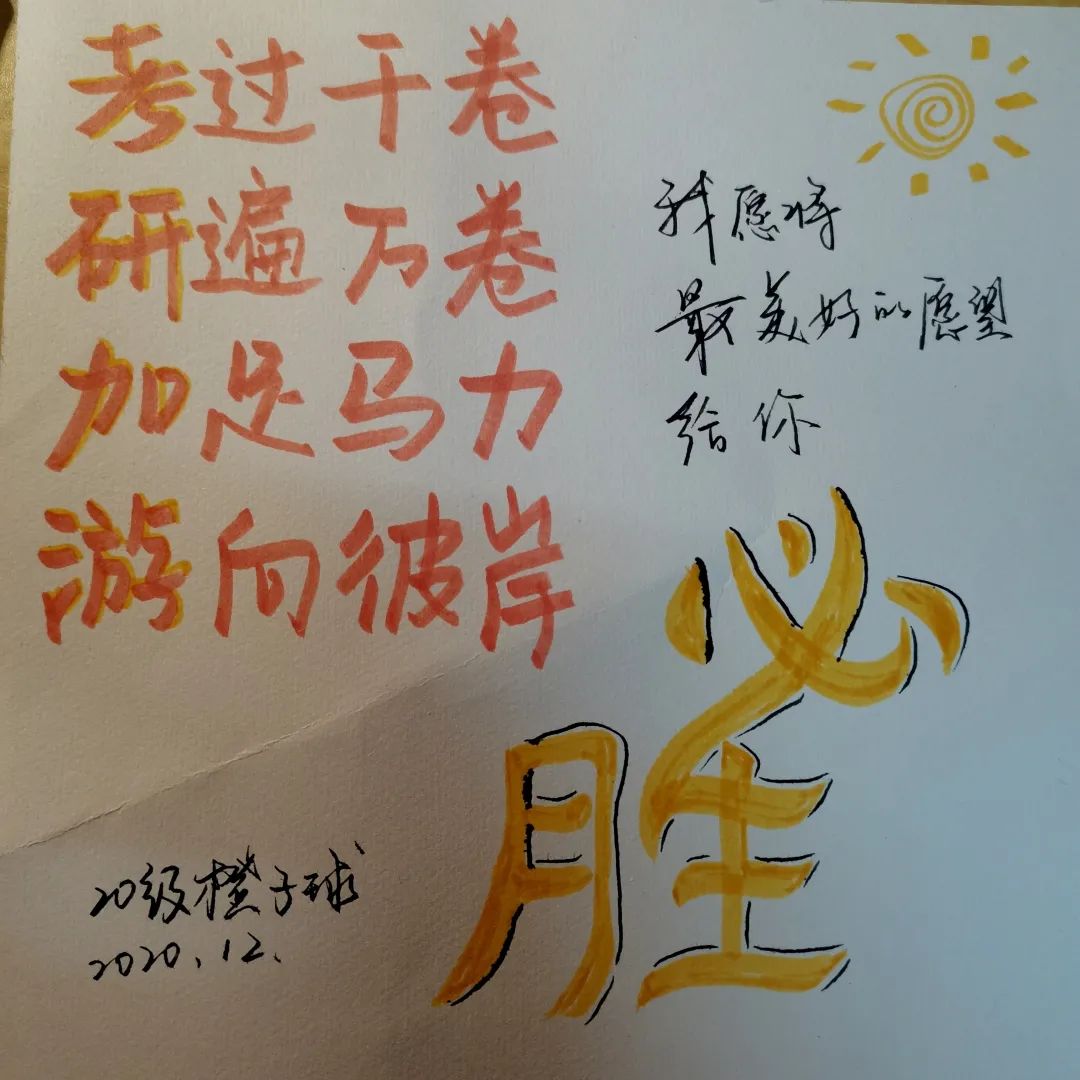 考过千卷
研遍万卷
加足马力
游向彼岸
我愿将
最美好的愿望
给你
必
胜
20级橙子球
2020.12.